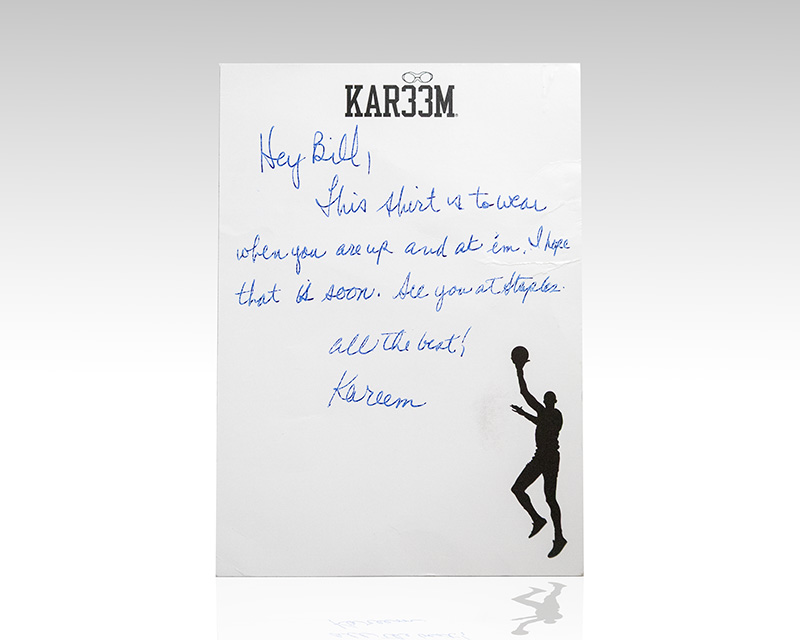 KAR33M
Hey Bill,
This shirt is to wear
when you are up and at 'em. I hope
that is soon. See you at Staples.
all the best!
Kareem